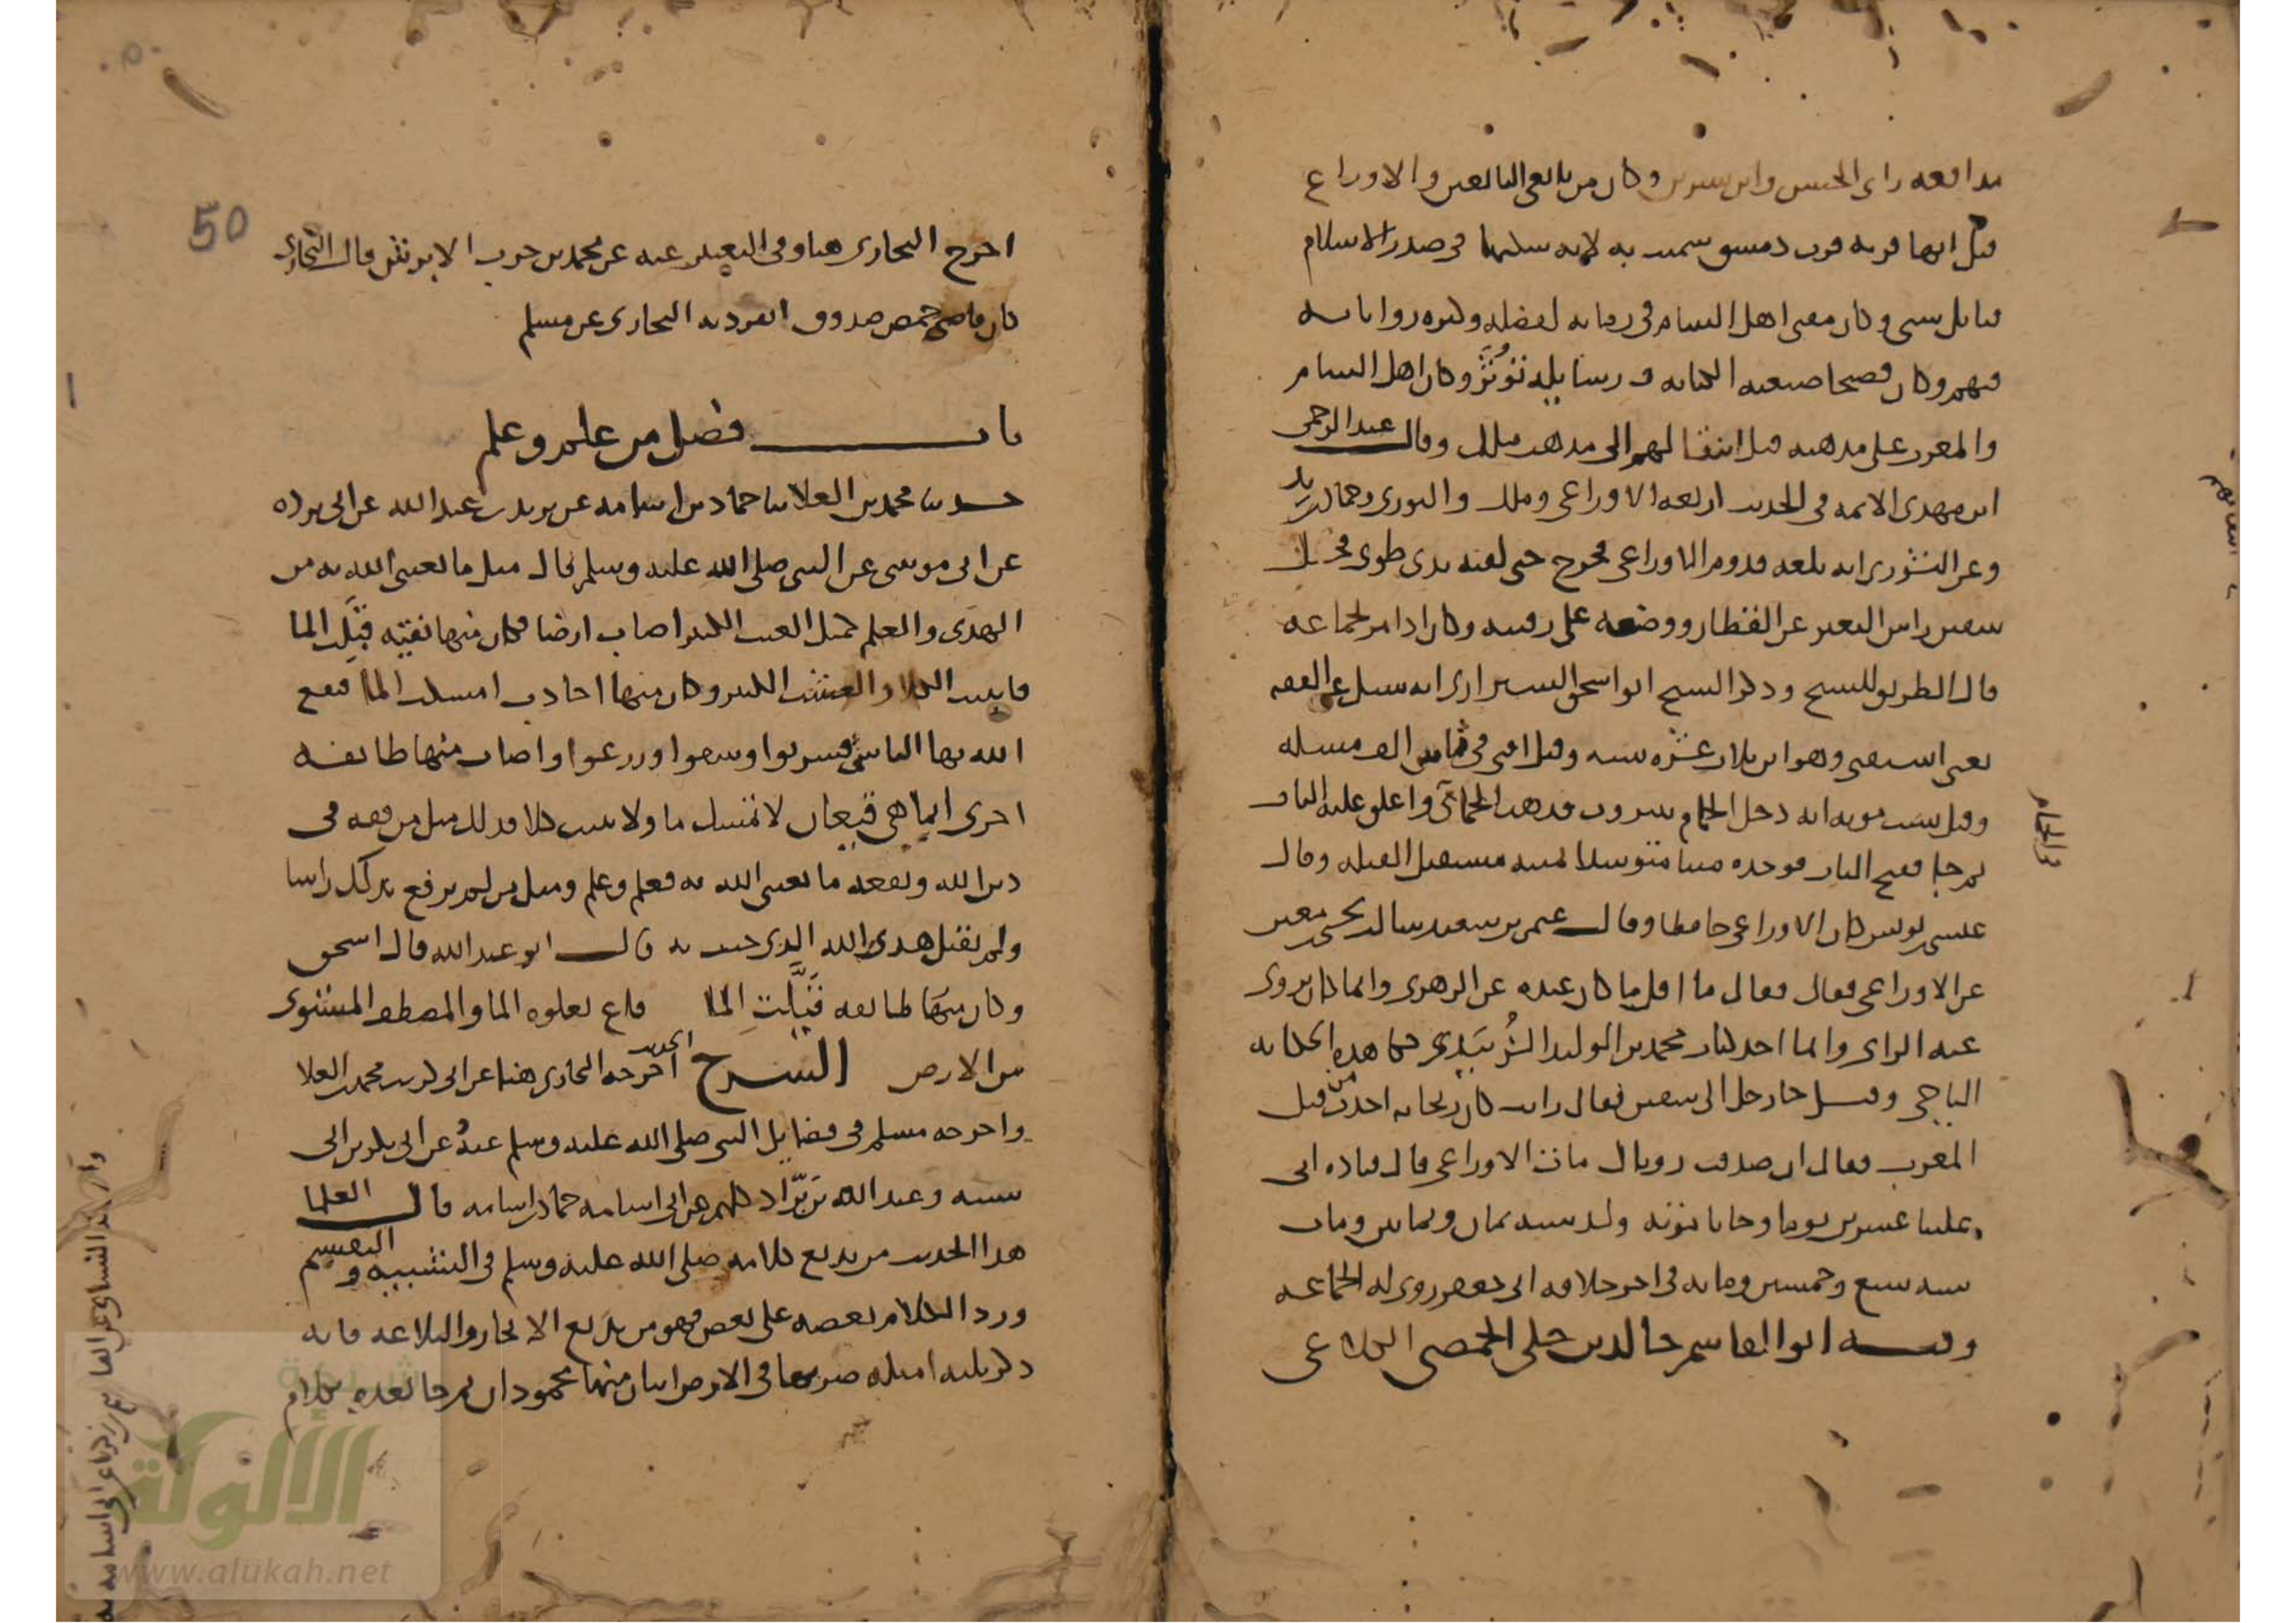 مدافعه راى الحسن وابن سيرين وكان من تابعى التابعين والاوزاع
قيل انها قرية قرب دمشق سميت به لانه سكنها فى صدر الاسلام
قبايل شتى وكان مفتى اهل الشام فى زمانه لفضله وكثره رواياته
فيهم وكان فصيحا صنعته الكتابه ورسايله تؤثر وكان اهل الشام
والمغرب على مذهبه قبل انتقالهم الى مذهب ملك وقال عبد الرحمن
ابن مهدى الائمه فى الحديث اربعه الاوزاعى وملك والثورى وحماد بن زيد
وعن الثورى انه بلغه قدوم الاوزاعى فخرج حتى لقيه بذى طوى فحل
سفين راس البعير عن القطار ووضعه على رقبته وكان اذا مر بجماعه
قال الطريق للشيخ وذكر الشيخ ابو اسحق الشيرازى انه سيل عن الفقه
يعنى استفتى وهو ابن ثلاث عشره سنه وقيل افتى فى ثمانين الف مسله
وقيل سبب موته انه دخل الحمام ببيروت فذهب الحمامى واغلق عليه الباب
ثم جا ففتح الباب فوجده ميتا متوسدا يمينه مستقبل القبله وقال
عيسى بن يونس كان الاوزاعى حافظا وقال عمر بن سعيد سالت يحيى بن معين
عن الاوزاعى فقال فقال ما اقل ما كان عنده عن الزهرى وانما كان يروى
عنه الراى وانما اخذ كتاب محمد بن الوليد الزُبَيدى حكا هذه الحكايه
الباجى وقيل جا رجل الى سفين فقال رايت كان ريحانه اخذت من قبل
المغرب فقال ان صدقت روياك مات الاوزاعى قال قتاده اتى
علينا عشرين يوما وجانا موته ولد سنه ثمان وثمانين ومات
سنه سبع وخمسين ومايه فى اخر خلافه ابى جعفر روى له الجماعه
وفيه ابو القاسم خالد بن خلى الحمصى الكلاعى
فى الحمام
50
اخرج البخارى هنا وفى التعبير عنه عن محمد بن حرب الابرش قال البخارى
كان قاضى حمص صدوق انفرد به البخارى عن مسلم
باب فضل من علم وعلم
حدثنا محمد بن العلا ثنا حماد بن اسامه عن بريد بن عبد الله عن ابى برده
عن ابى موسى عن النبى صلى الله عليه وسلم قال مثل ما بعثنى الله به من
الهدى والعلم كمثل الغيث الكثير اصاب ارضا فكان منها نقيه قبلت الما
فانبتت الكلا والعشب الكثير وكان منها اجادب امسكت الما فنفع
الله بها الناس فشربوا وسقوا وزرعوا واصاب منها طايفه
اخرى انما هى قيعان لا تمسك ما ولا تنبت كلا فذلك مثل من فقه فى
دين الله ونفعه ما بعثنى الله به فعلم وعلم ومثل من لم يرفع بذلك راسا
ولم يقبل هدى الله الذى جيت به قال ابو عبد الله قال اسحق
وكان منها طايفه قَيَّلت الما قاع يعلوه الما والصفصف المستوى
من الارض الشرح الحديث اخرجه البخارى هنا عن ابى كريب محمد بن العلا
واخرجه مسلم فى فضايل النبى صلى الله عليه وسلم عنه وعن ابى بكر بن ابى
شيبه وعبد الله بن برّاد كلهم عن ابى اسامه حماد بن اسامه قال العلما
هذا الحديث من بديع كلامه صلى الله عليه وسلم فى التشبيه والتقسيم
ورد الكلام بعضه على بعض فهو من بديع الايجاز والبلاغه فانه
ذكر ثلثه امثله ضربها فى الارض اثنان منها محمودان ثم جا بعده بكلام
الألوكة
www.alukah.net